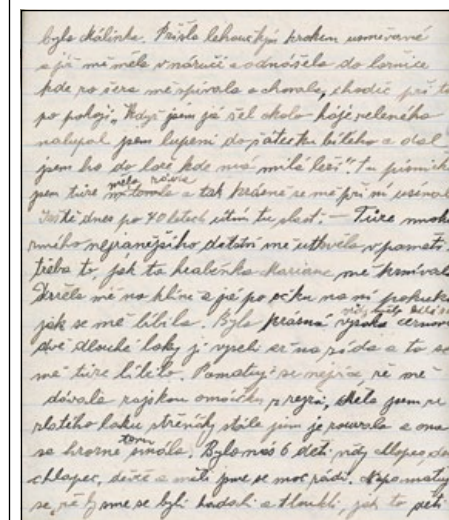 byla Málinka. Přišla lehoučkým krokem usměvavě
a již mě měla v náručí a odnášela do ložnice
kde za šera mě zpívala a chovala, chodíc při to
po pokoji. "Když jsem já šel okolo háje zeleného
nalupal jsem lupení do šátečku bílého a dal
jsem ho do lože kde má milá leží". Tu písničk
jsem tůze měla ráda a tak krásně se mě při ní usínal
Ještě dnes po 40 letech cítím tu slast. — Tůze mnoho
mého nejranějšího dětství mě utkvělo v paměti
třeba to, jak ta hraběnka Mariana mě krmívala
Držela mě na klíně a já po očku na ni pokuko
jak se mě líbila. Byla krásná vysoká černov
dvě dlouhé loky jí vyseli až na záda a to se
mě tůze líbilo. Pamatuji se nejvíc, že mě
dávala rajskou omáčku z rejží, chtěla jsem
zlatého laku střenky stále jsem je and ona
se hrozně tomu smála. Bylo nás 6 dětí vždy chlapec, děv
chlapec, děvče a měli jsme se moc rádi. Nepamatuj
se, že by sme se byli hádali a tloukli, jak to děti